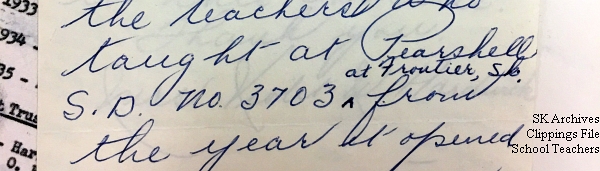 1933
1934 -
35 -
t Trus
- Har
O.
the teachers who
taught at Pearshell
at Frontier, Sk.
S.D. No. 3703 ^ from
the year it opened
SK Archives
Clippings File
School Teachers